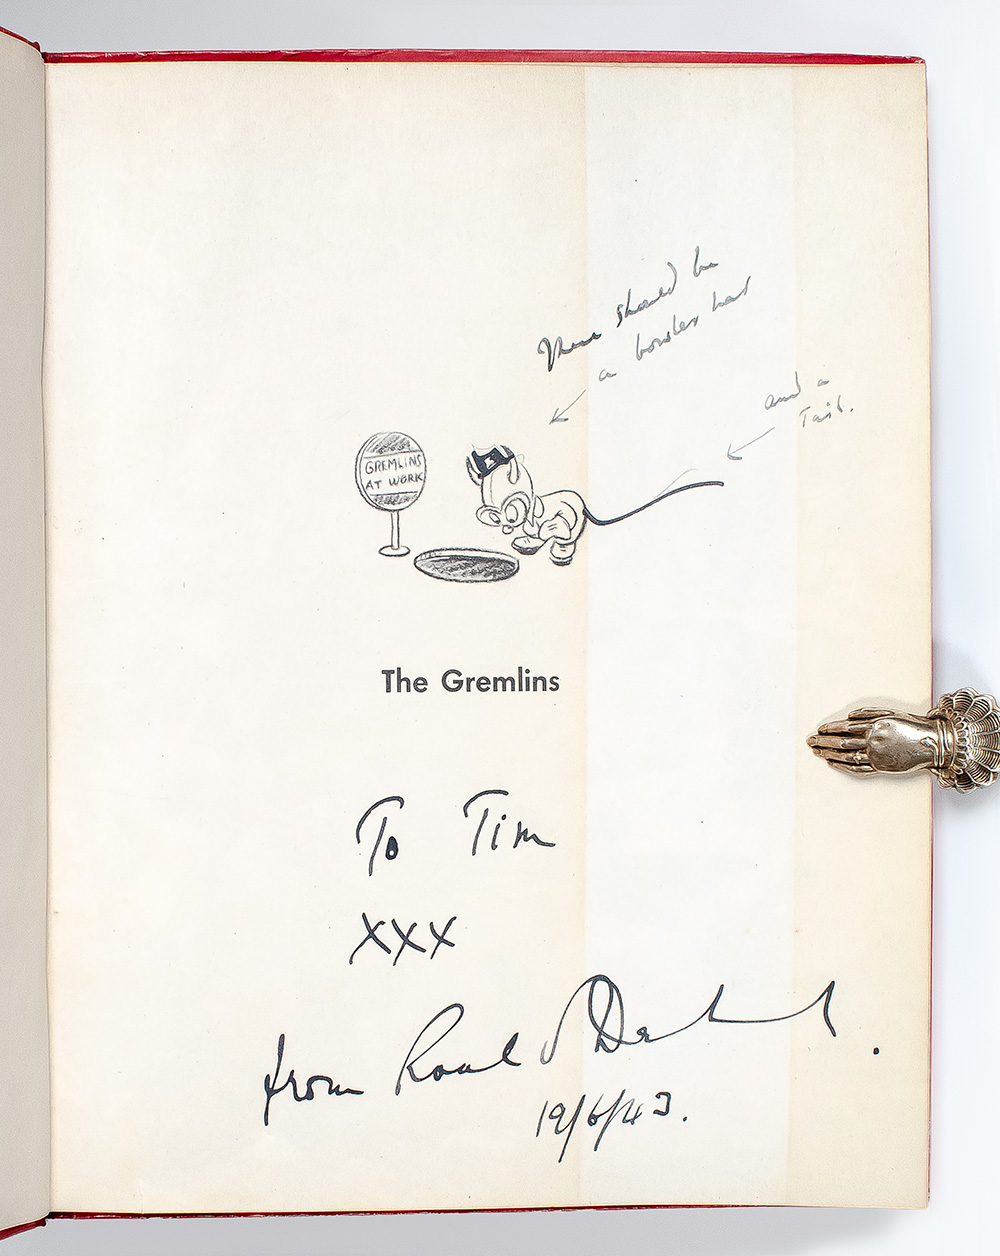 There should be
a bowler hat
and a
Tail.
GREMLINS
AT WORK
The Gremlins
To Tim
xxx
from Roald Dahl.
19/6/43.